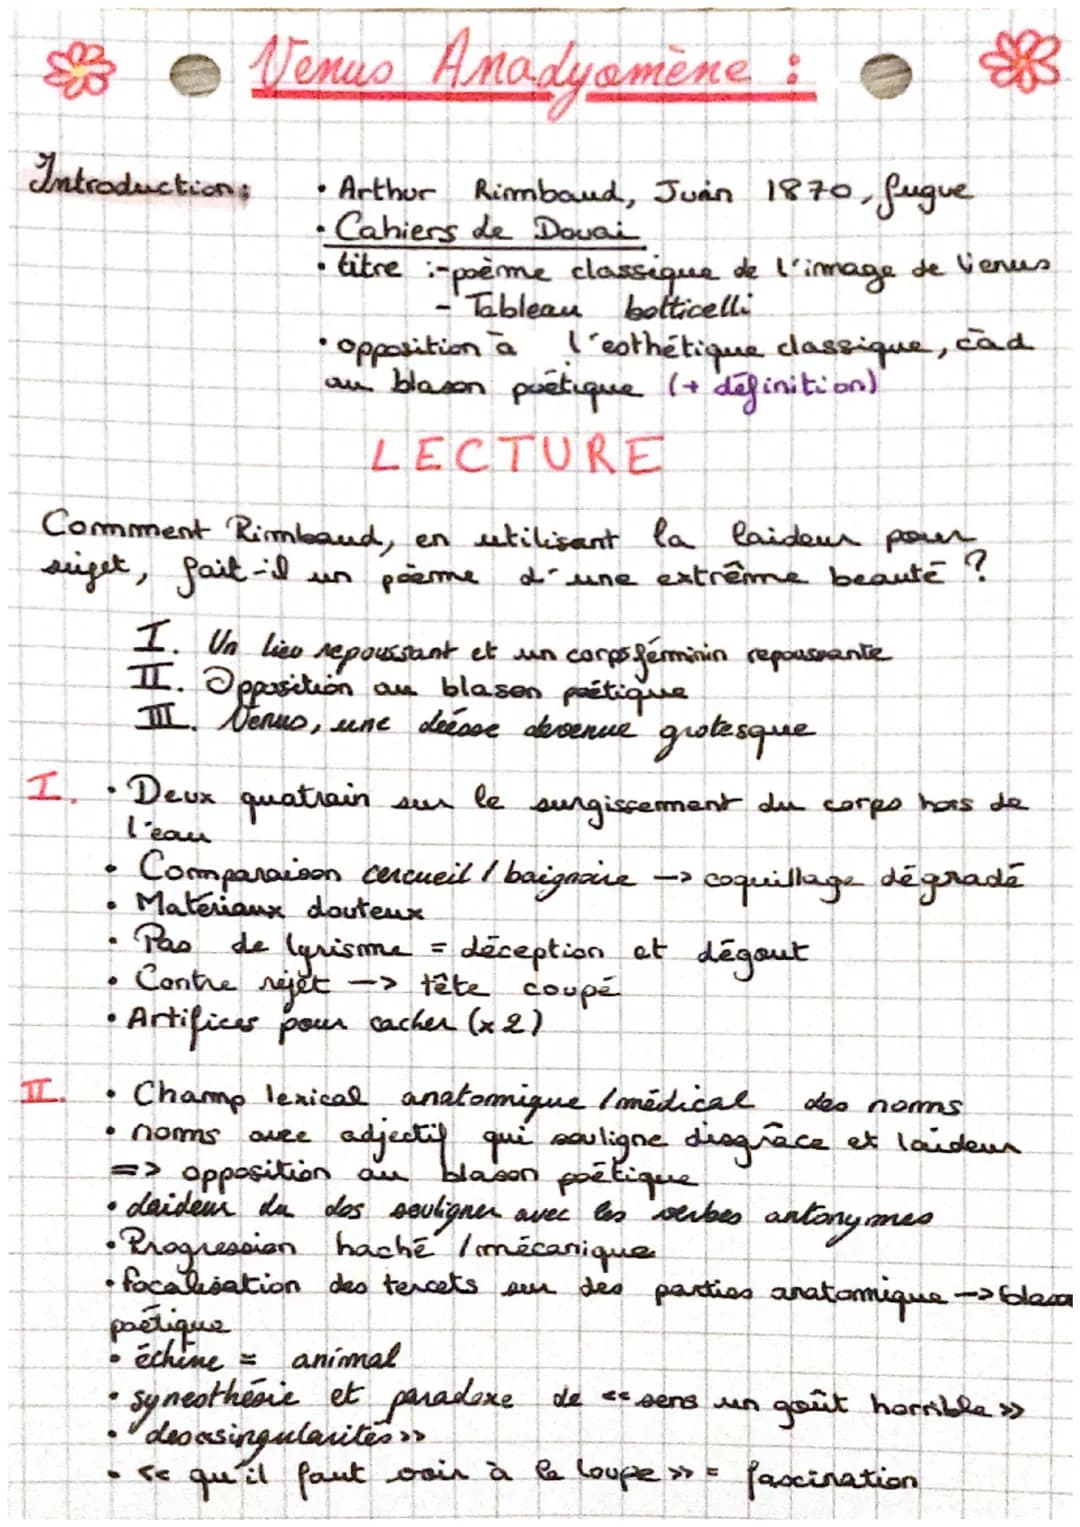 Venus Anadyomène :
Introduction :
• Arthur Rimbaud, Juin 1870, fugue
• Cahiers de Douai
• titre :- poème classique de l'image de Venus
- Tableau botticelli
• opposition à l'esthétique classique, càd
au blason poétique (+ définition)
LECTURE
Comment Rimbaud, en utilisant la laideur pour
sujet, fait-il un poème d'une extrême beauté ?
I. Un lieu repoussant et un corps féminin repoussante
II. Opposition au blason poétique
III. Venus, une déesse devenue grotesque
I. • Deux quatrain sur le surgissement du corps hors de
l'eau
• Comparaison cercueil / baignoire -> coquillage dégradé
• Matériaux douteux
• Pas de lyrisme = déception et dégout
• Contre rejet -> tête coupé
• Artifices pour cacher (x2)
II. • Champ lexical anatomique / médical des noms
• noms avec adjectif qui souligne disgrâce et laideur
=> opposition au blason poétique
• laideur du dos souligner avec les verbes antonymes
• Progression haché / mécanique
• focalisation des tercets sur des parties anatomique -> blason
poétique
• échine = animal
• synesthésie et paradoxe de << sens un goût horrible >>
• des << singularités >>
• << qu'il faut voir à la loupe >> = fascination